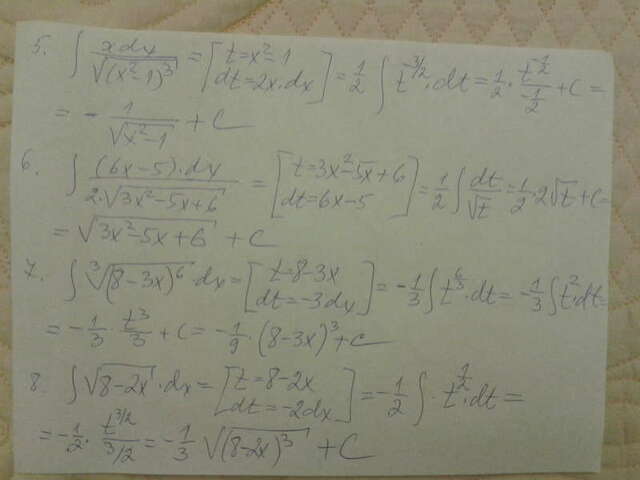 5. ∫ xdx/√(x²-1)³ = [t=x²-1 dt=2x·dx] = 1/2 ∫ t^(-3/2)·dt = 1/2 · t^(-1/2)/(-1/2) + C =
= - 1/√(x²-1) + C
6. ∫ (6x-5)·dx/(2·√(3x²-5x+6)) = [t=3x²-5x+6 dt=6x-5] = 1/2 ∫ dt/√t = 1/2 · 2√t + C =
= √(3x²-5x+6) + C
7. ∫ ³√(8-3x)⁶ dx = [t=8-3x dt=-3dx] = -1/3 ∫ t^(6/3)·dt = -1/3 ∫ t²·dt =
= -1/3 · t³/3 + C = -1/9 · (8-3x)³ + C
8. ∫ √(8-2x)·dx = [t=8-2x dt=-2dx] = -1/2 ∫ · t^(1/2)·dt =
= -1/2 · t^(3/2)/(3/2) = -1/3 √(8-2x)³ + C